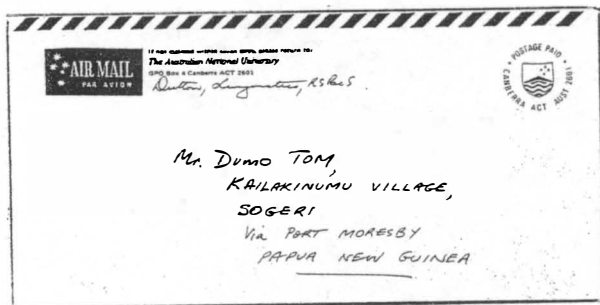 AIR MAIL
PAR AVION
The Australian National University
GPO Box 4 Canberra ACT 2601
Dutton, Linguistics, RSPacS.
POSTAGE PAID
CANBERRA ACT AUST 2601
Mr. DUMO TOM,
KAILAKINUMU VILLAGE,
SOGERI
Via PORT MORESBY
PAPUA NEW GUINEA